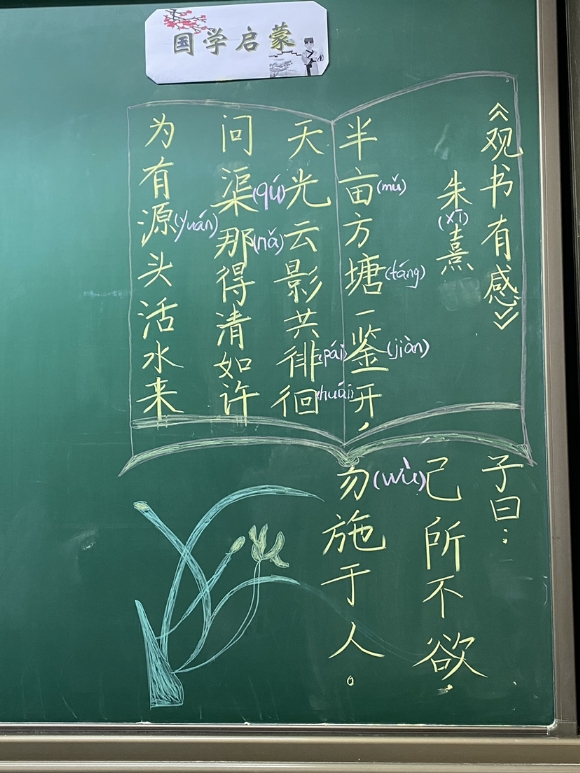 国学启蒙
《观书有感》
朱熹(xī)
半亩(mǔ)方塘(táng)一鉴(jiàn)开，
天光云影共徘(pái)徊(huái)
问渠(qú)那(nǎ)得清如许
为有源(yuán)头活水来
子曰：
己所不欲，
勿(wù)施于人。